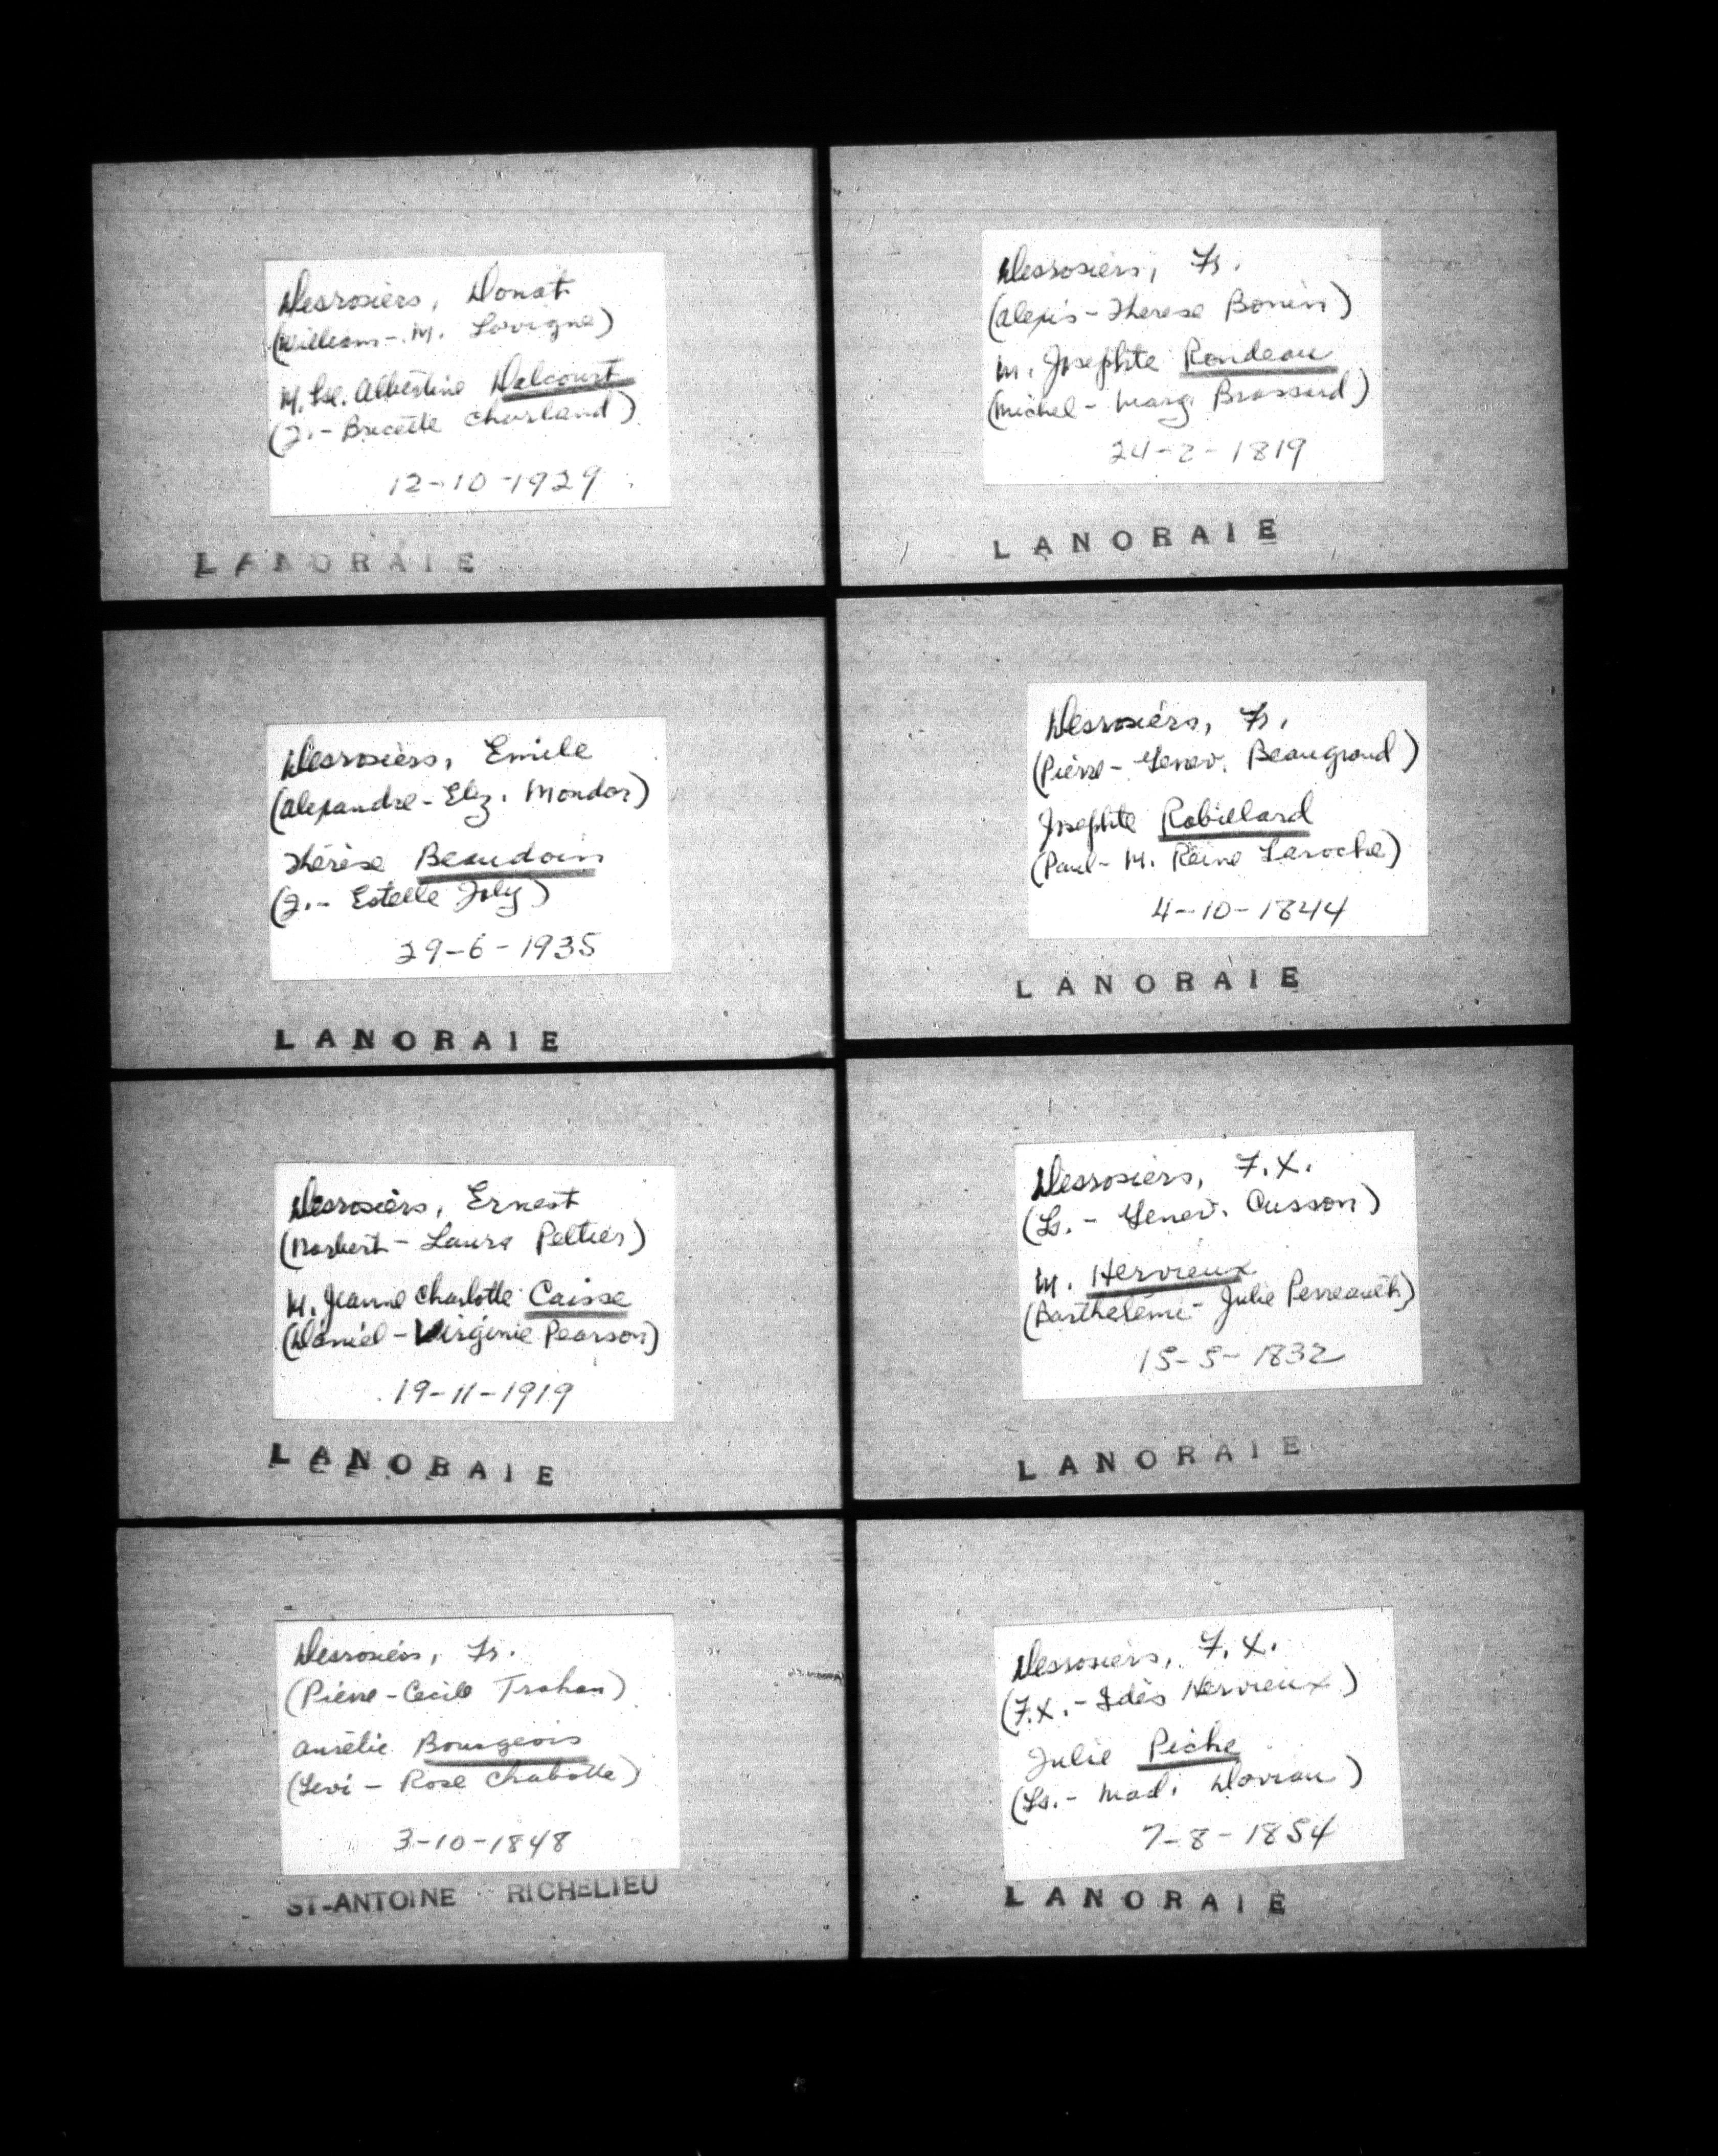 Desrosiers, Donat
(William - M. Lavigne)
M. Lse. Albertine Delcourt
(J. - Bricette Charland)
12-10-1929
LANORAIE
Desrosiers, Emile
(Alexandre - Elz. Mondor)
Thérèse Beaudoin
(J. - Estelle Joly)
29-6-1935
LANORAIE
Desrosiers, Ernest
(Norbert - Laura Peltier)
M. Jeanne Charlotte Caisse
(Daniel - Virginie Pearson)
19-11-1919
LANORAIE
Desrosiers, Fr.
(Pierre - Cecile Trahan)
Aurélie Bourgeois
(Levi - Rose Chabotte)
3-10-1848
ST-ANTOINE RICHELIEU
Desrosiers, Fr.
(Alexis - Therese Bonin)
M. Josephte Rondeau
(Michel - Marg. Brassard)
24-2-1819
LANORAIE
Desrosiers, Fr.
(Pierre - Genev. Beaugrand)
Josephte Robillard
(Paul - M. Reine Laroche)
4-10-1844
LANORAIE
Desrosiers, F.X.
(Ls. - Genev. Cusson)
M. Hervieux
(Barthelemi - Julie Perreault)
15-5-1832
LANORAIE
Desrosiers, F.X.
(F.X. - Edès Hervieux)
Julie Piche
(Ls. - Mad. Doviau)
7-8-1854
LANORAIE